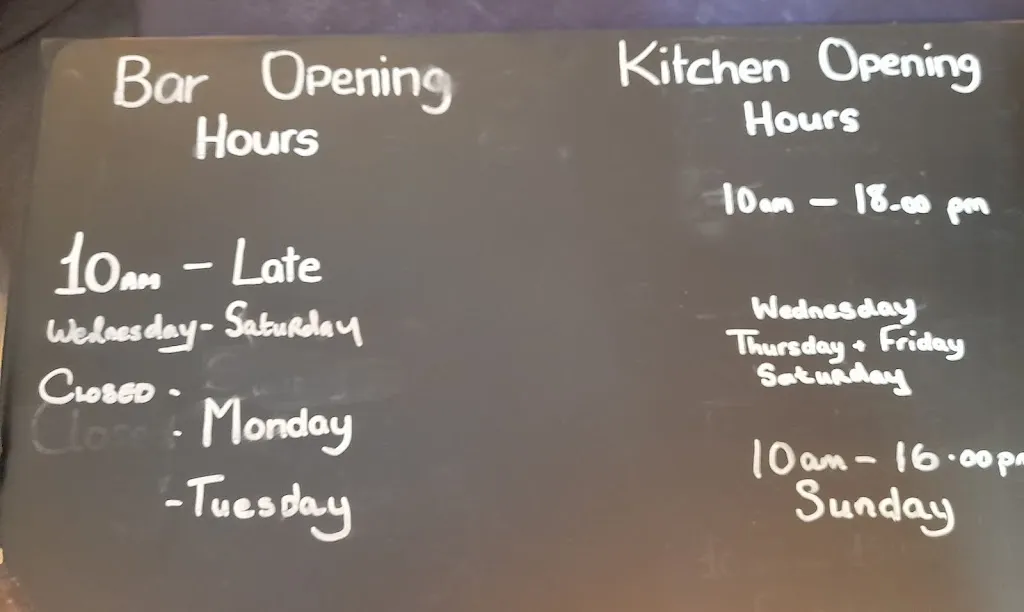 Bar Opening
Hours
10AM - Late
Wednesday - Saturday
CLOSED .
Closed . Monday
- Tuesday
Kitchen Opening
Hours
10am - 18.00 pm
Wednesday
Thursday + Friday
Saturday
10am - 16.00pm
Sunday